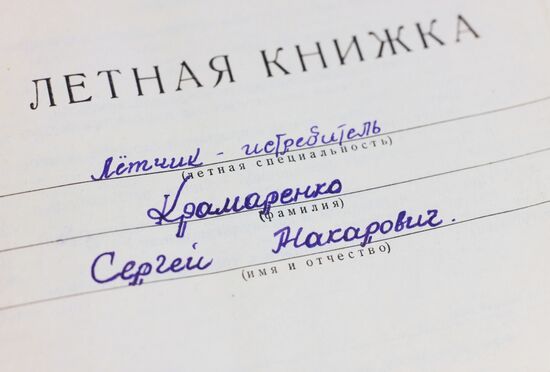 ЛЕТНАЯ КНИЖКА
Лётчик - истребитель
(летная специальность)
Крамаренко
(фамилия)
Сергей Макарович.
(имя и отчество)